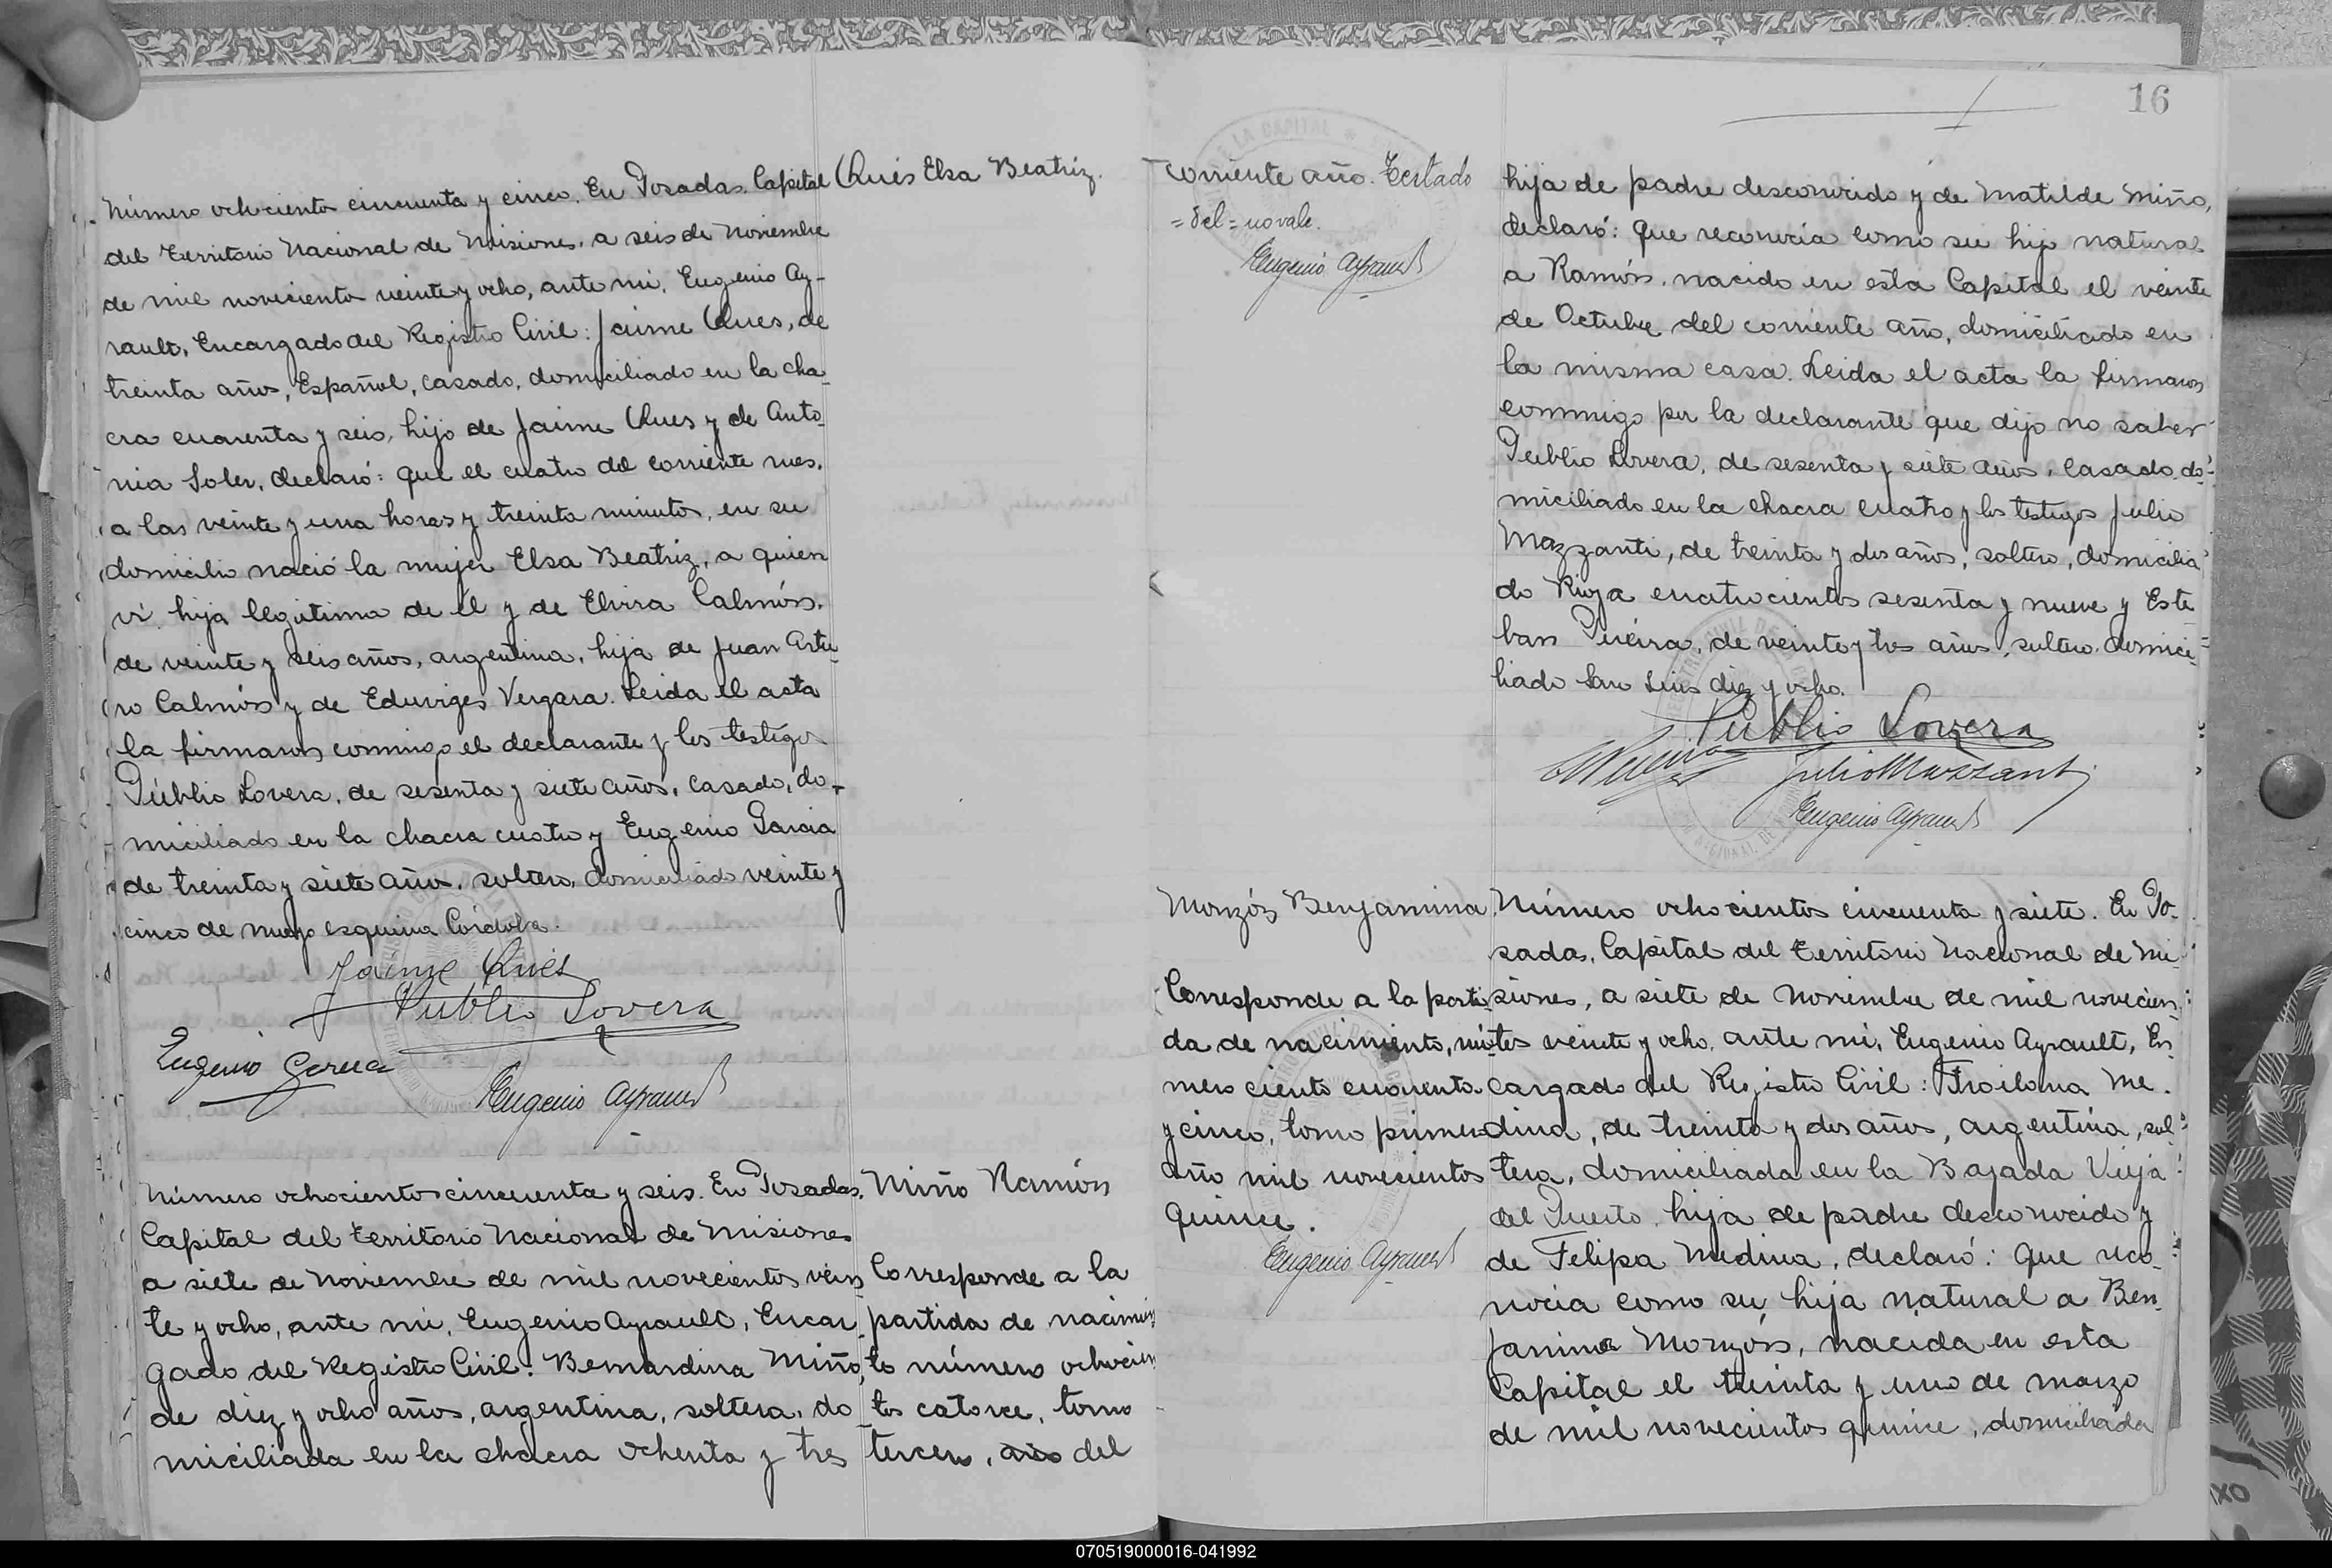 Número ochocientos cincuenta y cinco. En Posadas, Capital
del Territorio Nacional de Misiones, a seis de Noviembre
de mil novecientos veinte y ocho, ante mi, Eugenio Ay-
rault, Encargado del Registro Civil: Jaime Qués, de
treinta años, Español, casado, domiciliado en la cha-
cra cuarenta y seis, hijo de Jaime Qués y de Anto-
nia Soler, declaró: que el cuatro del corriente mes,
a las veinte y una horas y treinta minutos, en su
domicilio nació la mujer Elsa Beatriz, a quien
ví, hija legítima de él y de Elvira Calmón,
de veinte y seis años, argentina, hija de Juan Artu-
ro Calmón y de Eduviges Vergara. Leida el acta
la firmaron conmigo el declarante y los testigos
Públio Lovera, de sesenta y siete años, casado, do-
miciliado en la chacra cuatro y Eugenio Garcia
de treinta y siete años, soltero, domiciliado veinte y
cinco de mayo esquina Córdoba.
Jaime Qués
Publio Lovera
Eugenio Garcia
Eugenio Ayrault
Qués Elsa Beatriz.
Número ochocientos cincuenta y seis. En Posadas,
Capital del Territorio Nacional de Misiones
a siete de Noviembre de mil novecientos vein
te y ocho, ante mi, Eugenio Ayrault, Encar
gado del Registro Civil: Bernardina Miño,
de diez y ocho años, argentina, soltera, do
miciliada en la chacra ochenta y tres
Miño Ramón
Corresponde a la
partida de nacimien
to número ochocien
tos catorce, tomo
tercero, año del
corriente año. Testado
= del = no vale.
Eugenio Ayrault
16
hija de padre desconocido y de Matilde Miño,
declaró: Que reconocía como su hijo natural
a Ramón, nacido en esta Capital el veinte
de Octubre del corriente año, domiciliado en
la misma casa. Leida el acta la firmaron
conmigo por la declarante que dijo no saber
Públio Lovera, de sesenta y siete años, casado, do-
miciliado en la chacra cuatro y los testigos Julio
Mazzanti, de treinta y dos años, soltero, domicilia
do Rioja cuatrocientos sesenta y nueve y Este
ban Pueira, de veinte y tres años, soltero, domici-
liado San Luis diez y ocho.
Publio Lovera
Julio Mazzanti
Eugenio Ayrault
Monzón Benjamina
Corresponde a la parti
da de nacimiento, nú
mero ciento cuarenta
y cinco, tomo primero
año mil novecientos
quince.
Eugenio Ayrault
Número ochocientos cincuenta y siete. En Po-
sadas, Capital del Territorio Nacional de Mi-
siones, a siete de Noviembre de mil novecien-
tos veinte y ocho, ante mi, Eugenio Ayrault, En-
cargado del Registro Civil: Froilana Me-
dina, de treinta y dos años, argentina, sol-
tera, domiciliada en la Bajada Vieja
del Puerto, hija de padre desconocido y
de Felipa Medina, declaró: Que reco-
nocia como su hija natural a Ben-
jamina Monzón, nacida en esta
Capital el treinta y uno de marzo
de mil novecientos quince, domiciliada
070519000016-041992